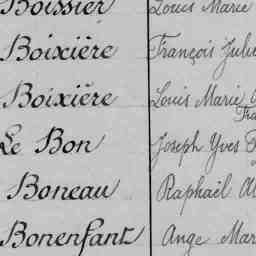 Boissier Louis Marie
Boixière François Julie
Boixière Louis Marie
Le Bon Joseph Yves
Boneau Raphaël
Bonenfant Ange Mar